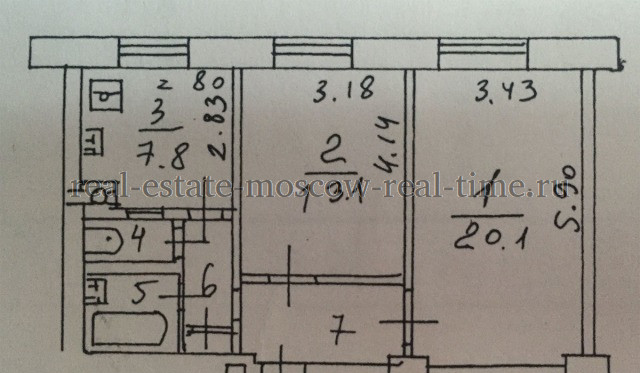 2 80
3
7.8
2.83
3.18
2
13.1
4.14
3.43
1
20.1
5.90
real-estate-moscow-real-time.ru
4
5
6
7